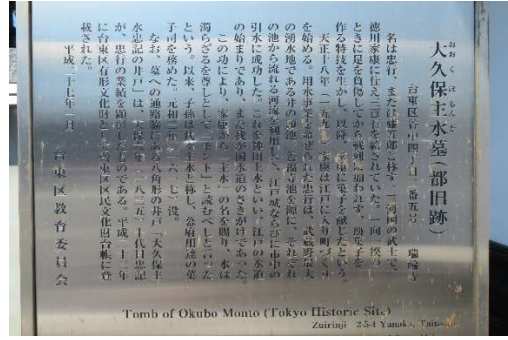 大久保主水墓(都旧跡)
おおくぼもんと
台東区谷中四丁目二番五号 瑞輪寺
名は忠行、または藤五郎と称す。三河国の武士で、
徳川家康に仕え三百石を給されていた。一向一揆の
ときに足を負傷してから戦列に加われず、餅菓子を
作る特技を生かし、以降、家康に菓子を献じたという。
天正十八年(一五九〇)、家康は江戸に入り町づくり
を始める。用水事業を命ぜられた忠行は、武蔵野最大
の湧水地である井の頭池、善福寺池を源に、それぞれ
の池から流れる河流を利用し、江戸城ならびに市中の
引水に成功した。これを神田上水といい、江戸の水道
の始まりであり、また我が国水道のさきがけであった。
この功により、家康から「主水」の名を賜り、水は
濁らざるを尊しとして「モント」と読むべしと言った
という。以来、子孫は代々主水と称し、幕府用達の菓
子司を務めた。元和三年(一六一七)没。
なお、墓への通路脇にある八角形の井戸「大久保主
水忠記の井戸」は、天保六年(一八三五)十代目忠記
が、忠行の業績を顕彰したものである。平成二十一年
に台東区有形文化財として台東区区民文化財台帳に登
載された。
平成二十七年一月
台東区教育委員会
Tomb of Okubo Monto (Tokyo Historic Site)
Zuirinji 2-5-4 Yanaka, Taito-ku